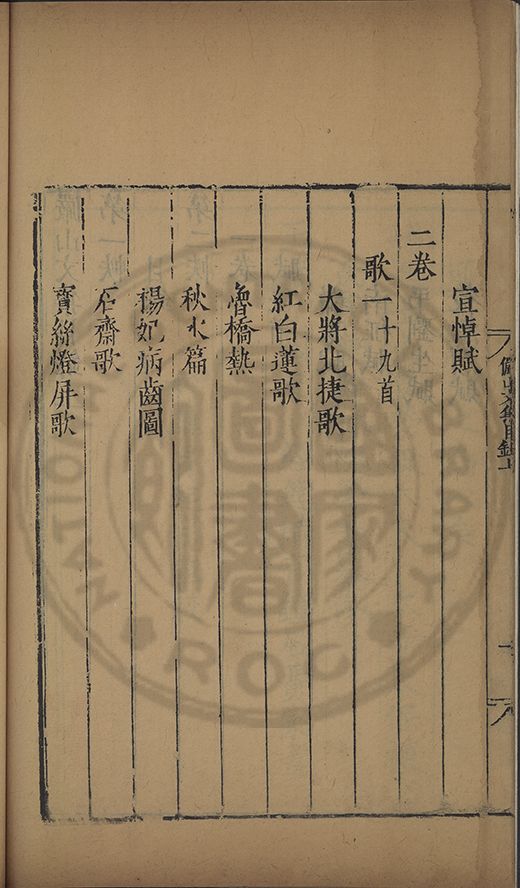 宣悼賦
二卷
歌一十九首
大將北捷歌
紅白蓮歌
魯橋熱
秋水篇
楊妃病齒圖
石齋歌
寶絲燈屏歌